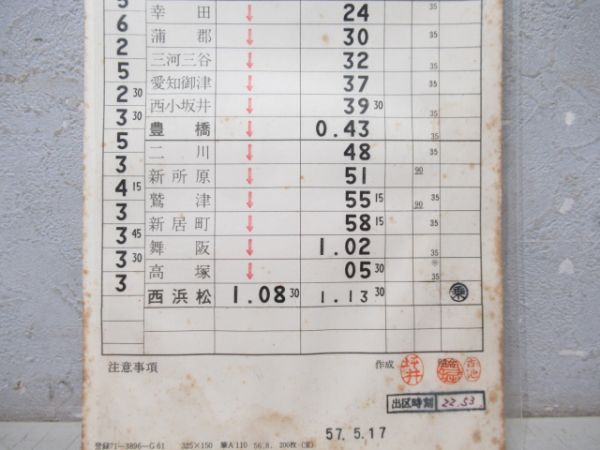 5
幸田 ↓ 24 35
6
蒲郡 ↓ 30 35
2
三河三谷 ↓ 32
5
愛知御津 ↓ 37 35
2 30
西小坂井 ↓ 39 30
3 30
豊橋 ↓ 0.43 35
5
二川 ↓ 48 35
3
新所原 ↓ 51 90
4 15
鷲津 ↓ 55 15 90 35
3
新居町 ↓ 58 15 35
3 45
舞阪 ↓ 1.02 35
3 30
高塚 ↓ 05 30 35
3
西浜松 1.08 30 1.13 30 乗
注意事項 作成
出区時刻 22.53
57.5.17
登録71-3896-G61 325×150 筆A110 56.8. 200枚